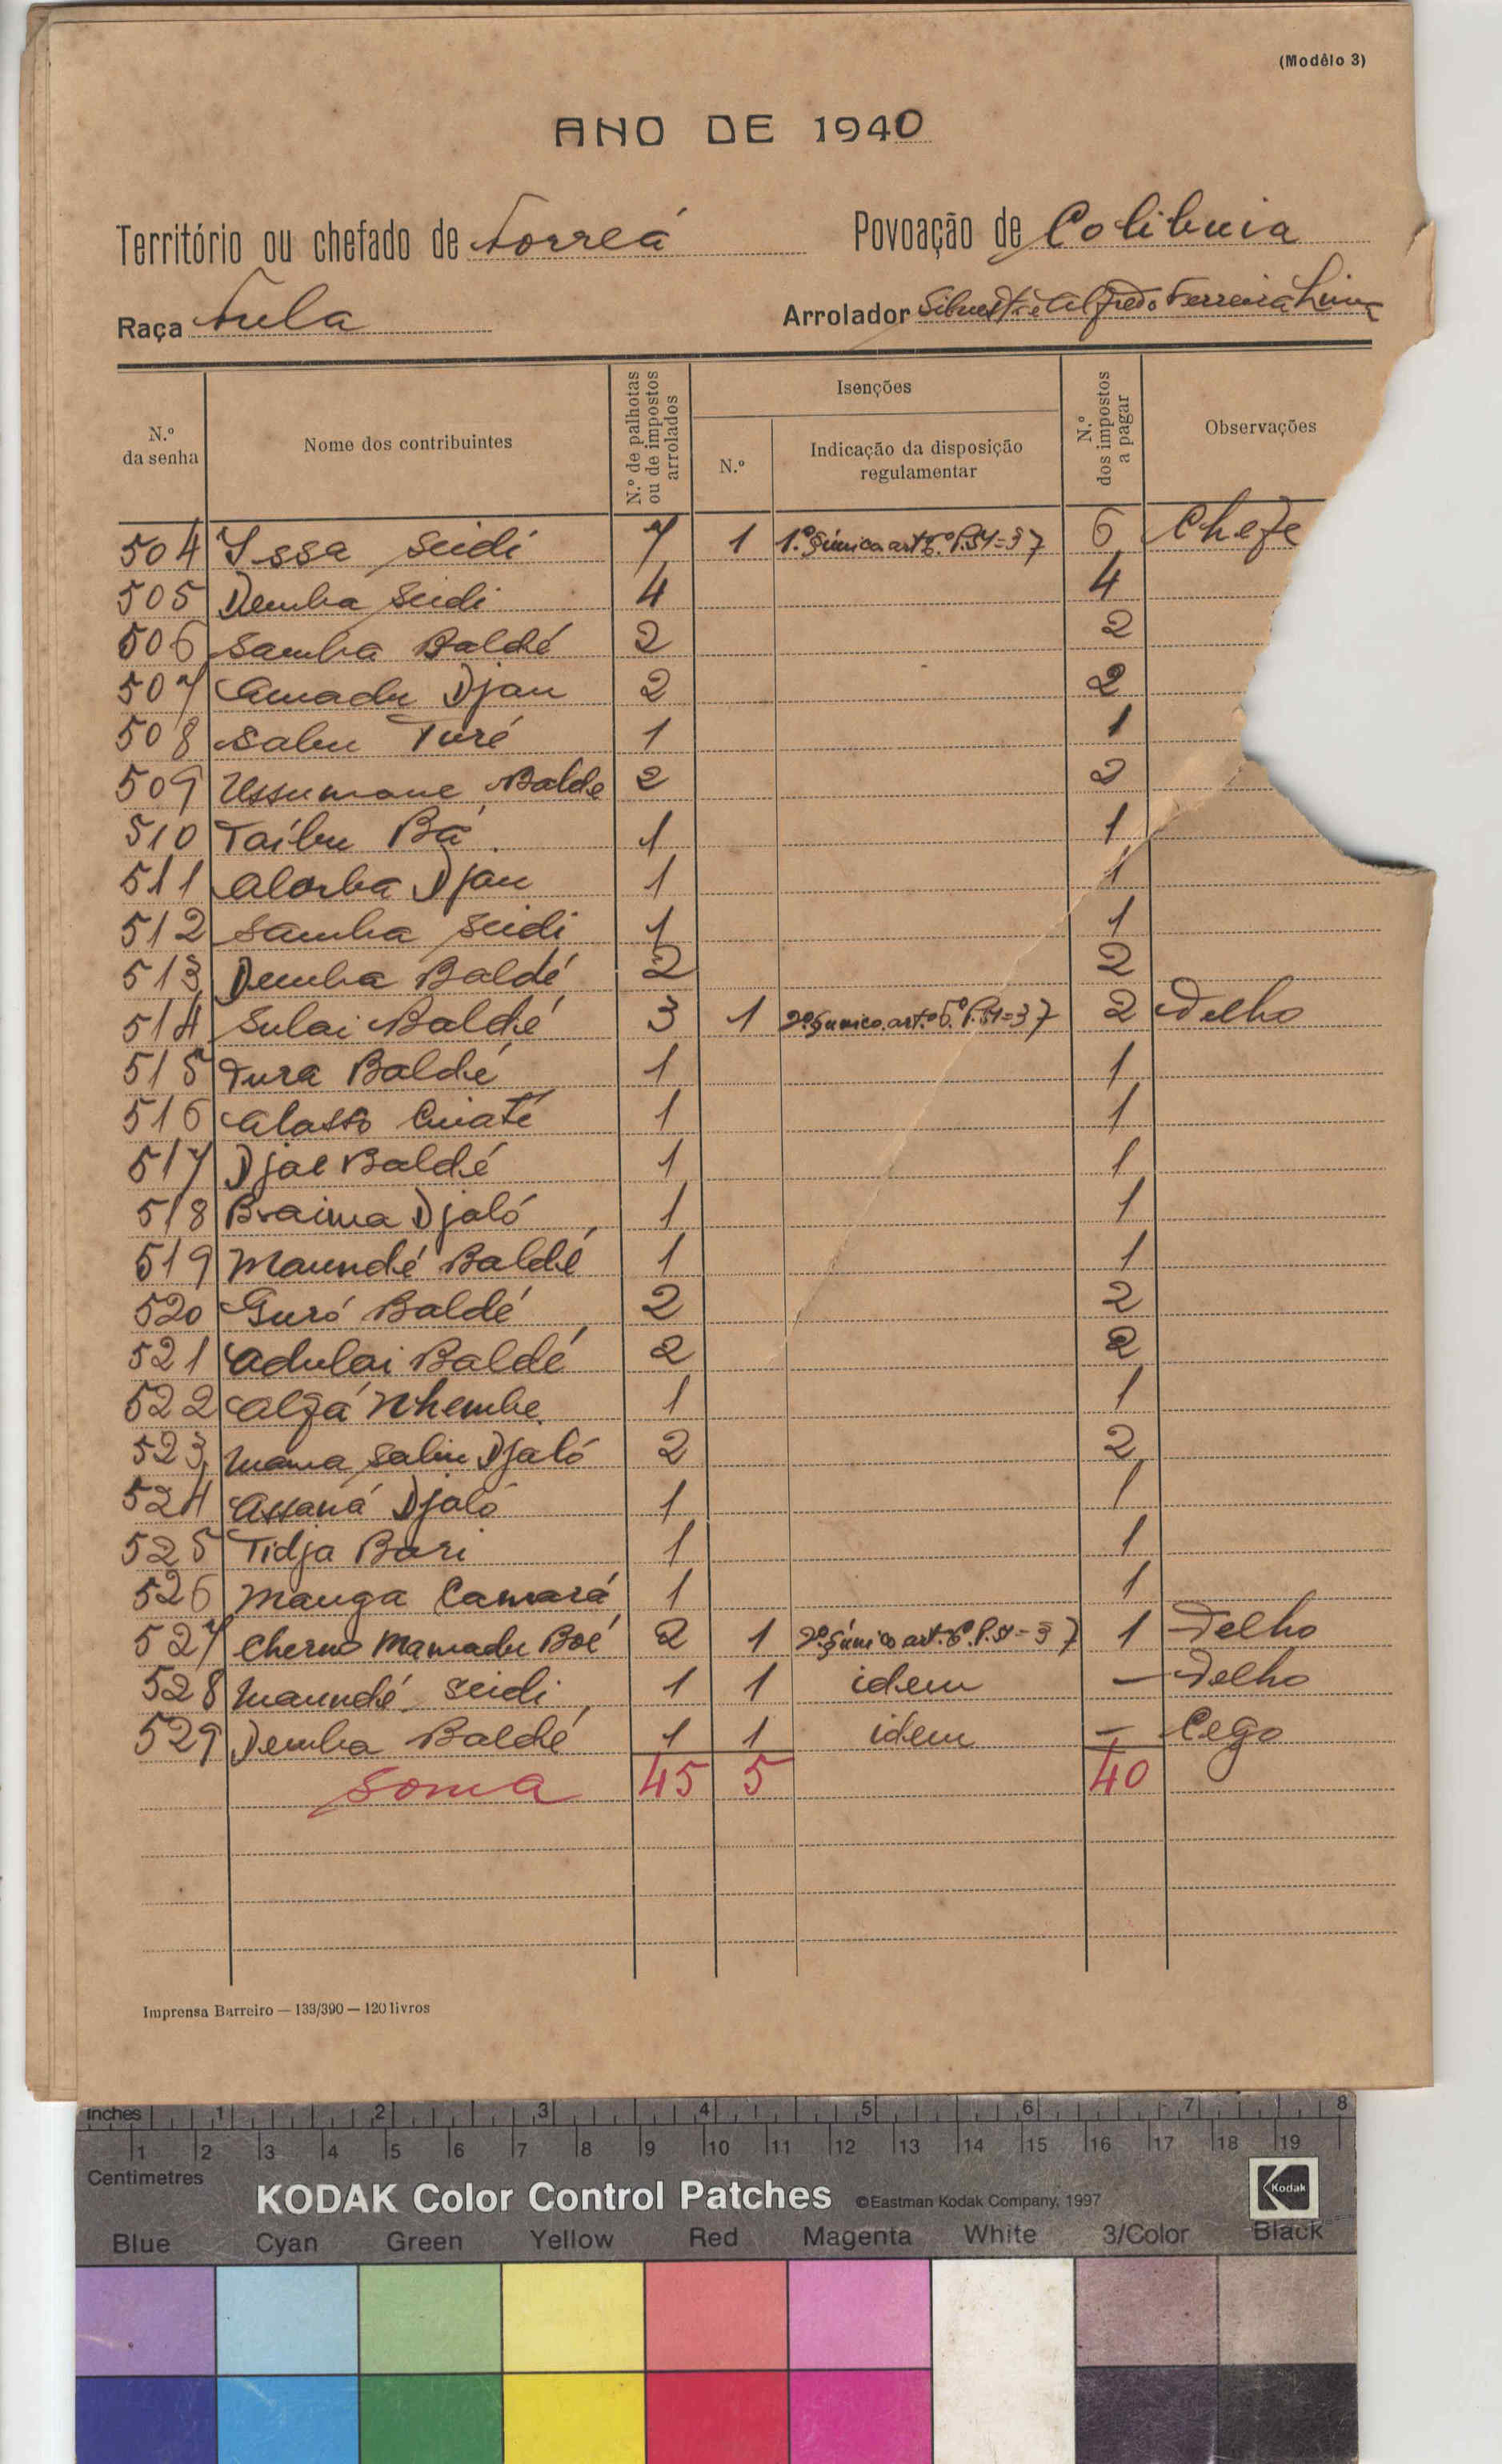 (Modêlo 3)
ANO DE 1940
Território ou chefado de Forreá Povoação de Colibuia
Raça Fula Arrolador Silvestre Alfredo Ferreira Lima
N.º da senha
Nome dos contribuintes
N.º de palhotas ou de impostos arrolados
Isenções
N.º
Indicação da disposição regulamentar
N.º dos impostos a pagar
Observações
504 Issa Seidi 7 1 1.º § único art.º 6.º P. 51=37 6 Chefe
505 Demba Seidi 4 4
506 Samba Baldé 2 2
507 Amadu Djau 2 2
508 Saliu Turé 1 1
509 Ussumane Balde 2 2
510 Taíbu Bá 1 1
511 Alarba Djau 1 1
512 Samba Seidi 1 1
513 Demba Baldé 2 2
514 Sulai Baldé 3 1 2.º § unico. art.º 6.º P. 51=37 2 Velho
515 Tura Baldé 1 1
516 Alasso 1 1
517 Djae Baldé 1 1
518 Braima Djaló 1 1
519 Maundé Baldé 1 1
520 Guró Baldé 2 2
521 Adulai Baldé 2 2
522 Algá Nhembe 1 1
523 Mama Saliu Djaló 2 2
524 Assaná Djaló 1 1
525 Tidja Bari 1 1
526 Manga Camará 1 1
527 Cherno Mamadu Boé 2 1 2.º § único art.º 6.º P. 51=37 1 Velho
528 Maundé Seidi 1 1 idem — Velho
529 Demba Baldé 1 1 idem — Cego
Soma 45 5 40
Imprensa Barreiro — 133/390 — 120 livros
inches 1 2 3 4 5 6 7 8
1 2 3 4 5 6 7 8 9 10 11 12 13 14 15 16 17 18 19
Centimetres
KODAK Color Control Patches ©Eastman Kodak Company, 1997 Kodak
Blue Cyan Green Yellow Red Magenta White 3/Color Black